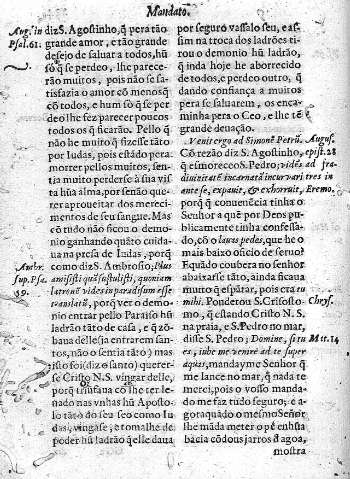 Mandato.
Aug. in
Psal. 61.
diz S. Agostinho, q̃ pera tão
grande amor, e tão grande
desejo de saluar a todos, hũ
só q̃ se perdeo, lhe parece-
rão muitos, pois não se sa-
tisfazia o amor cõ menos q̃
cõ todos, e hum só q̃ se per-
deo lhe fez parecer poucos
todos os q̃ ficarão. Pello q̃
não he muito q̃ fizesse tãto
por Iudas, pois estãdo pera
morrer pellos muitos, sen-
tia muito perderse à sua vis-
ta hũa alma, por senão que-
rer aproueitar dos mereci-
mentos de seu sangue. Mas
não se louue disso o demo-
nio ganhando quãto cuida-
ua na presa de Iudas, porq̃
como diz S. Ambrosio, Plus
amisisti quã sustulisti, quoniam
latronẽ vides in paradisum esse
translatũ, porq̃ ver o demo-
nio entrar pello Paraiso hũ
ladrão tãto de casa, e q̃ zõ-
baua delle (ja entrarem san-
tos, não o sentia tãto) mas
isso foi (diz o santo) querer-
se Cristo N. S. vingar delle,
porq̃ triũfaua cõ lhe ter le-
uado nas vnhas hũ Aposto-
lo tãto do seu seo como Iu-
das, vingase, e tomalhe de
poder hũ ladrão q̃ elle daua
Ambr.
sup. Psa.
39.
por seguro vassalo seu, e as-
sim na troca dos ladrões ti-
rou o demonio hũ ladrão,
q̃ inda hoje he aborrecido
de todos, e perdeo outro, q̃
dando confiança a muitos
pera se saluarem, os enca-
minha pera o Ceo, e lhe tẽ
grande deuação.
Venit ergo ad Simonẽ Petrũ.
Cõ rezão diz S. Agostinho,
q̃ esmoreceo S. Pedro; vidẽs
diuinitatẽ incarnatã incuruari
ante se, expauit, & exhorruit,
porq̃ q̃ conuenẽcia tinha o
Senhor a quẽ por Deus pu-
blicamente tinha confessa-
do, cõ o lauas pedes, que he o
mais baixo oficio de seruo?
E quãdo couberа no senhor
abaixarse tãto, ainda ficaua
muito q̃ espãtar, pois era tu
mihi. Ponderou S. Crisosto-
mo, q̃ estando Cristo N. S.
na praia, e S. Pedro no mar,
disse S. Pedro; Domine, si tu
es, iube me venire ad te super
aquas, mandayme Senhor q̃
me lance no mar, q̃ nada te
merei, pois o vosso manda-
do me faz tudo seguro; e a-
gora quãdo o mesmo Señor
lhe mãda meter o pé em hũa
bacia cõ dous jarros d'agoa,
mostra
Augus.
epist. 28
ad fra-
tres in
Eremo.
Chrys.
Mtt. 14